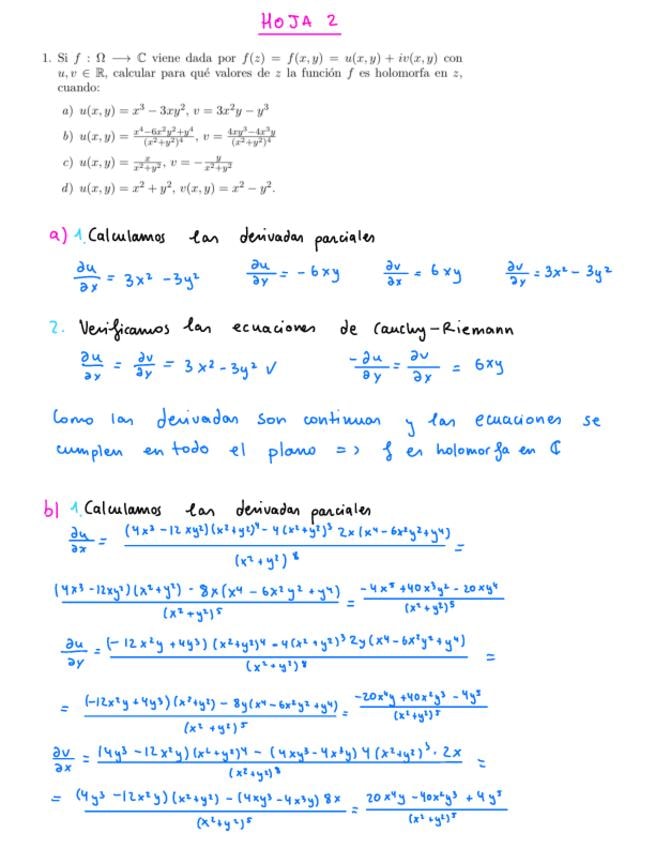 HOJA 2
1. Si f : Ω ⟶ ℂ viene dada por f(z) = f(x, y) = u(x, y) + iv(x, y) con
u, v ∈ ℝ, calcular para qué valores de z la función f es holomorfa en z,
cuando:
a) u(x, y) = x³ − 3xy², v = 3x²y − y³
b) u(x, y) = (x⁴−6x²y²+y⁴)/(x²+y²)⁴, v = (4xy³−4x³y)/(x²+y²)⁴
c) u(x, y) = x/(x²+y²), v = − y/(x²+y²)
d) u(x, y) = x² + y², v(x, y) = x² − y².
a) 1. Calculamos las derivadas parciales
∂u/∂x = 3x² − 3y² ∂u/∂y = − 6xy ∂v/∂x = 6xy ∂v/∂y = 3x² − 3y²
2. Verificamos las ecuaciones de Cauchy-Riemann
∂u/∂x = ∂v/∂y = 3x² − 3y² ✓ −∂u/∂y = ∂v/∂x = 6xy
Como las derivadas son continuas y las ecuaciones se
cumplen en todo el plano => f es holomorfa en ℂ
b) 1. Calculamos las derivadas parciales
∂u/∂x = ((4x³ − 12xy²)(x²+y²)⁴ − 4(x²+y²)³ 2x(x⁴ − 6x²y² + y⁴))/(x²+y²)⁸ =
((4x³ − 12xy²)(x²+y²) − 8x(x⁴ − 6x²y² + y⁴))/(x²+y²)⁵ = (−4x⁵ + 40x³y² − 20xy⁴)/(x²+y²)⁵
∂u/∂y = ((−12x²y + 4y³)(x²+y²)⁴ − 4(x²+y²)³ 2y(x⁴ − 6x²y² + y⁴))/(x²+y²)⁸ =
= ((−12x²y + 4y³)(x²+y²) − 8y(x⁴ − 6x²y² + y⁴))/(x²+y²)⁵ = (−20x⁴y + 40x²y³ − 4y⁵)/(x²+y²)⁵
∂v/∂x = ((4y³ − 12x²y)(x²+y²)⁴ − (4xy³ − 4x³y) 4(x²+y²)³ · 2x)/(x²+y²)⁸ =
= ((4y³ − 12x²y)(x²+y²) − (4xy³ − 4x³y) 8x)/(x²+y²)⁵ = (20x⁴y − 40x²y³ + 4y⁵)/(x²+y²)⁵